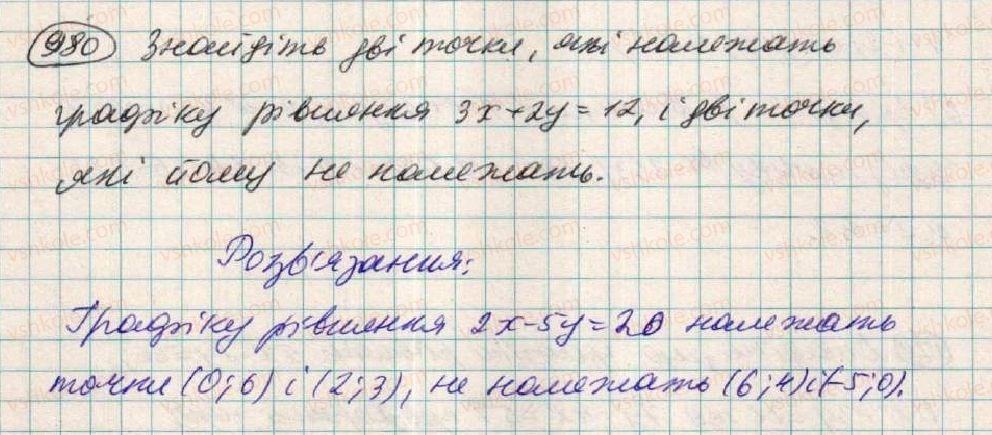 980 Знайдіть дві точки, які належать
графіку рівняння 3x+2y=12, і дві точки,
які йому не належать.
Розв'язання:
Графіку рівняння 2x-5y=20 належать
точки (0;6) і (2;3), не належать (6;4) і (-5;0).